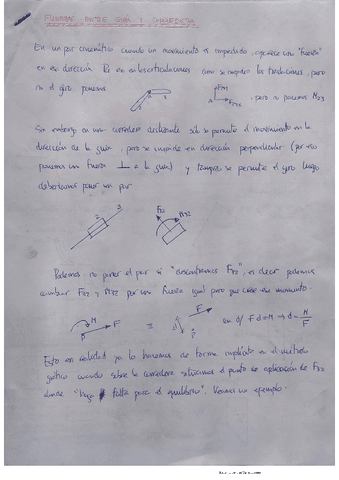 FUERZAS ENTRE GUÍA Y CORREDERA
En un par cinemático cuando un movimiento es impedido, aparece un "fuerza"
en esa dirección. Así en las articulaciones como se impiden las traslaciones, pero
no el giro ponemos
, pero no ponemos M23
Sin embargo en una corredera deslizante sólo se permite el movimiento en la
dirección de la guía, pero se impide en dirección perpendicular (por eso
ponemos un fuerza ⊥ a la guía) y tampoco se permite el giro luego
deberíamos poner un par
2 3
F32 M32
Podemos no poner el par si "descentramos F32", es decir podemos
cambiar F32 y M32 por un fuerza igual pero que cree ese momento.
M F ≡ d F en d/ F·d=M → d= M/F
Esto en realidad ya lo hacemos de forma implícita en el método
gráfico cuando sobre la corredera situamos el punto de aplicación de F32
donde "haga falta para el equilibrio". Veamos un ejemplo.